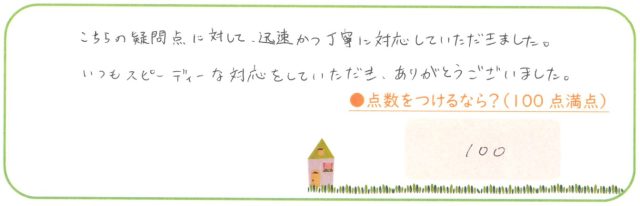 こちらの疑問点に対して、迅速かつ丁寧に対応していただきました。
いつもスピーディーな対応をしていただき、ありがとうございました。
●点数をつけるなら？(100点満点)
100